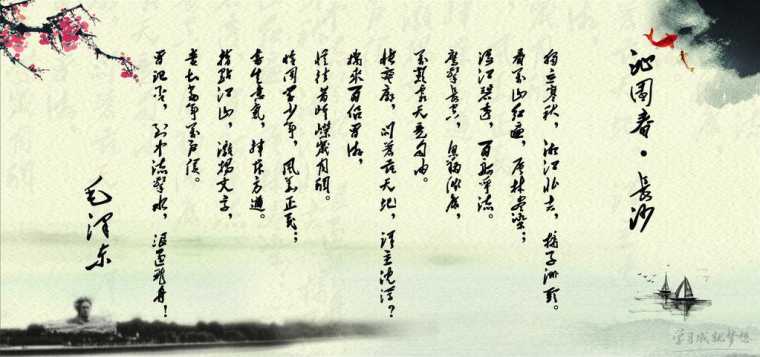 沁園春·長沙
独立寒秋，湘江北去，橘子洲头。
看万山红遍，层林尽染；
漫江碧透，百舸争流。
鹰击长空，鱼翔浅底，
万类霜天竞自由。
怅寥廓，问苍茫大地，谁主沉浮？
携来百侣曾游，
忆往昔峥嵘岁月稠。
恰同学少年，风华正茂；
书生意气，挥斥方遒。
指点江山，激扬文字，
粪土当年万户侯。
曾记否，到中流击水，浪遏飞舟！
毛泽东
学习成就梦想